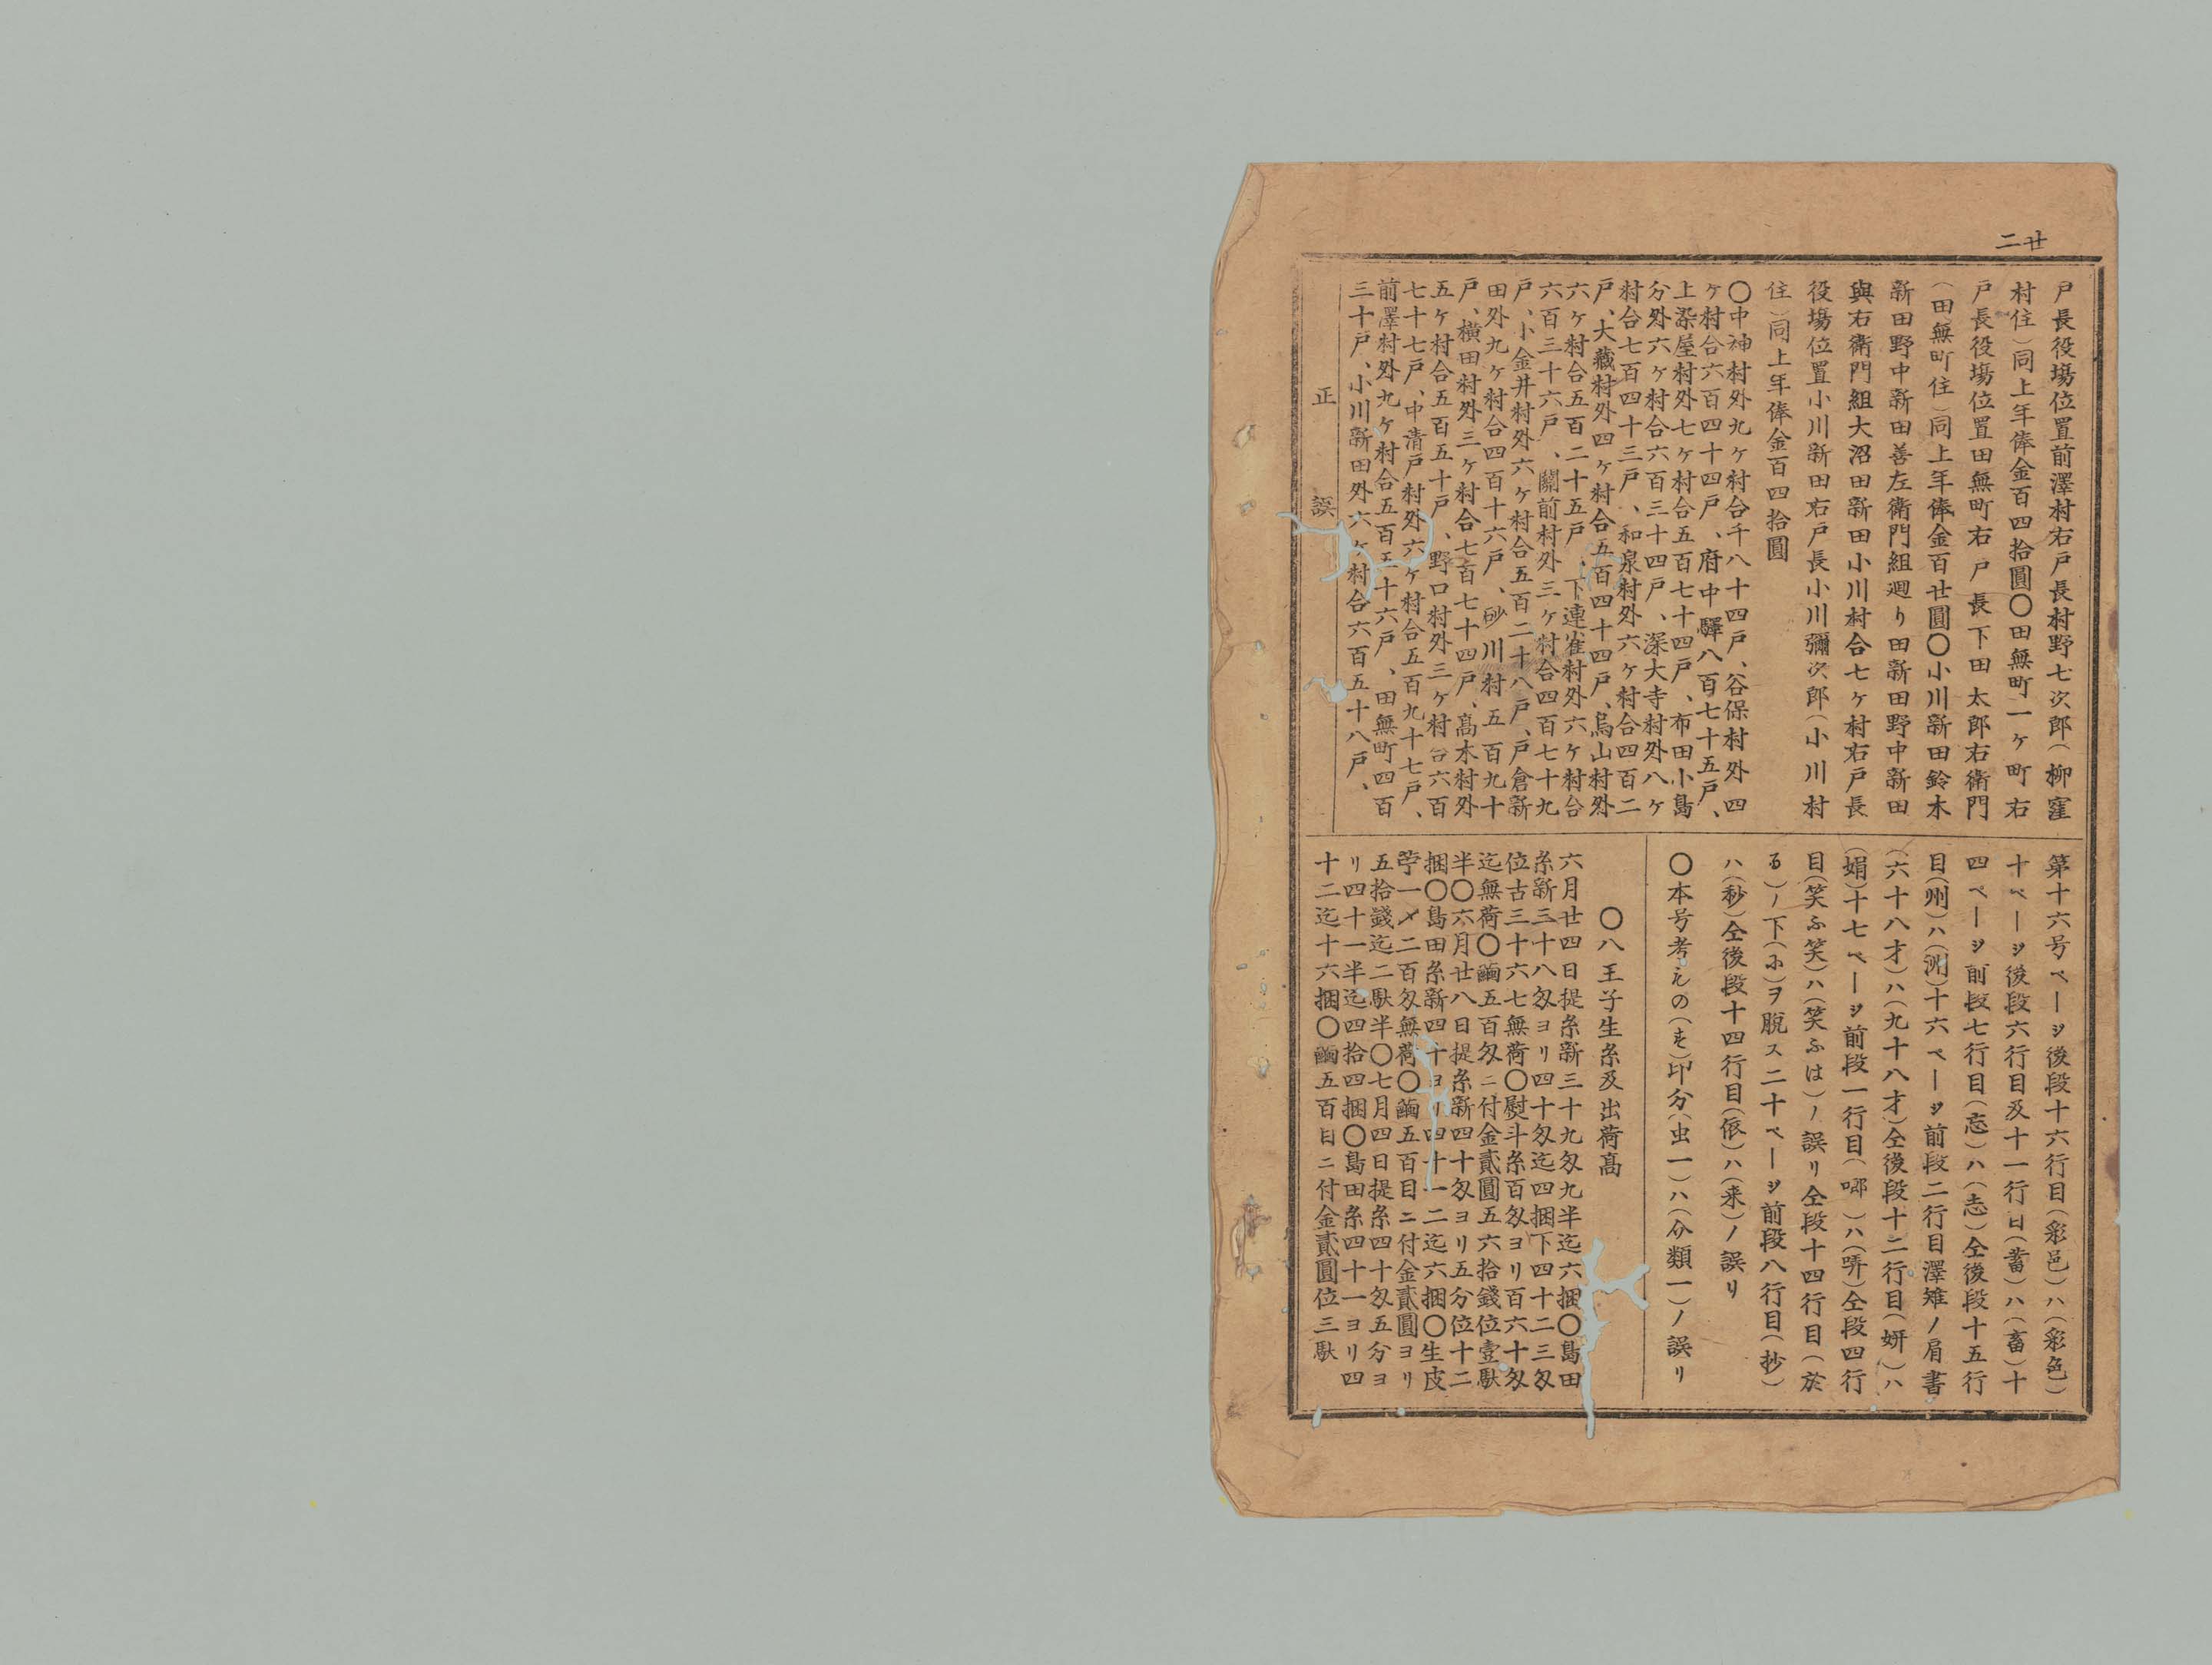 廿二
戸長役塲位置前澤村右戸長村野七次郎（柳窪
村住）同上年俸金百四拾圓〇田無町一ヶ町右
戸長役塲位置田無町右戸長下田太郎右衛門
（田無町住）同上年俸金百廿圓〇小川新田鈴木
新田野中新田善左衛門組廻り田新田野中新田
與右衛門組大沼田新田小川村合七ヶ村右戸長
役塲位置小川新田右戸長小川彌次郎（小川村
住）同上年俸金百四拾圓
〇中神村外九ヶ村合千八十四戸、谷保村外四
ヶ村合六百四十四戸、府中驛八百七十五戸、
上染屋村外七ヶ村合五百七十四戸、布田小島
分外六ヶ村合六百三十四戸、深大寺村外八ヶ
村合七百四十三戸、和泉村外六ヶ村合四百二
戸、大藏村外四ヶ村合五百四十四戸、烏山村外
六ヶ村合五百二十五戸、下連雀村外六ヶ村合
六百三十六戸、關前村外三ヶ村合四百七十九
戸、小金井村外六ヶ村合五百二十八戸、戸倉新
田外九ヶ村合四百十六戸、砂川村五百九十
戸、横田村外三ヶ村合七百七十四戸、髙木村外
五ヶ村合五百五十戸、野口村外三ヶ村合六百
七十七戸、中清戸村外六ヶ村合五百九十七戸、
前澤村外九ヶ村合五百五十六戸、田無町四百
三十戸、小川新田外六ヶ村合六百五十八戸、
正誤
第十六号ペーシ後段十六行目（彩邑）ハ（彩色）
十ペーシ後段六行目及十一行目（蓄）ハ（畜）十
四ペーシ前段七行目（忘）ハ（志）仝後段十五行
目（州）ハ（洲）十六ペーシ前段二行目澤雉ノ肩書
（六十八才）ハ（九十八才）仝後段十二行目（妍）ハ
（娟）十七ペーシ前段一行目（哪）ハ（哢）仝段四行
目（笑ふ笑）ハ（笑ふは）ノ誤リ仝段十四行目（於
る）ノ下（小）ヲ脱ス二十ペーシ前段八行目（抄）
ハ（秒）仝後段十四行目（依）ハ（来）ノ誤リ
〇本号考えの（を）印分（虫一）ハ（分類一）ノ誤リ
〇八王子生糸及出荷髙
六月廿四日提糸新三十九匁九半迄六捆〇島田
糸新三十八匁ヨリ四十匁迄四捆下四十二三匁
位古三十六七無荷〇熨斗糸百匁ヨリ百六十匁
迄無荷〇繭五百匁ニ付金貳圓五六拾錢位壹駄
半〇六月廿八日提糸新四十匁ヨリ五分位十二
捆〇島田糸新四十ヨリ四十一二迄六捆〇生皮
苧一メ二百匁無荷〇繭五百目ニ付金貳圓ヨリ
五拾錢迄二駄半〇七月四日提糸四十匁五分ヨ
リ四十一半迄四拾四捆〇島田糸四十一ヨリ四
十二迄十六捆〇繭五百目ニ付金貳圓位三駄